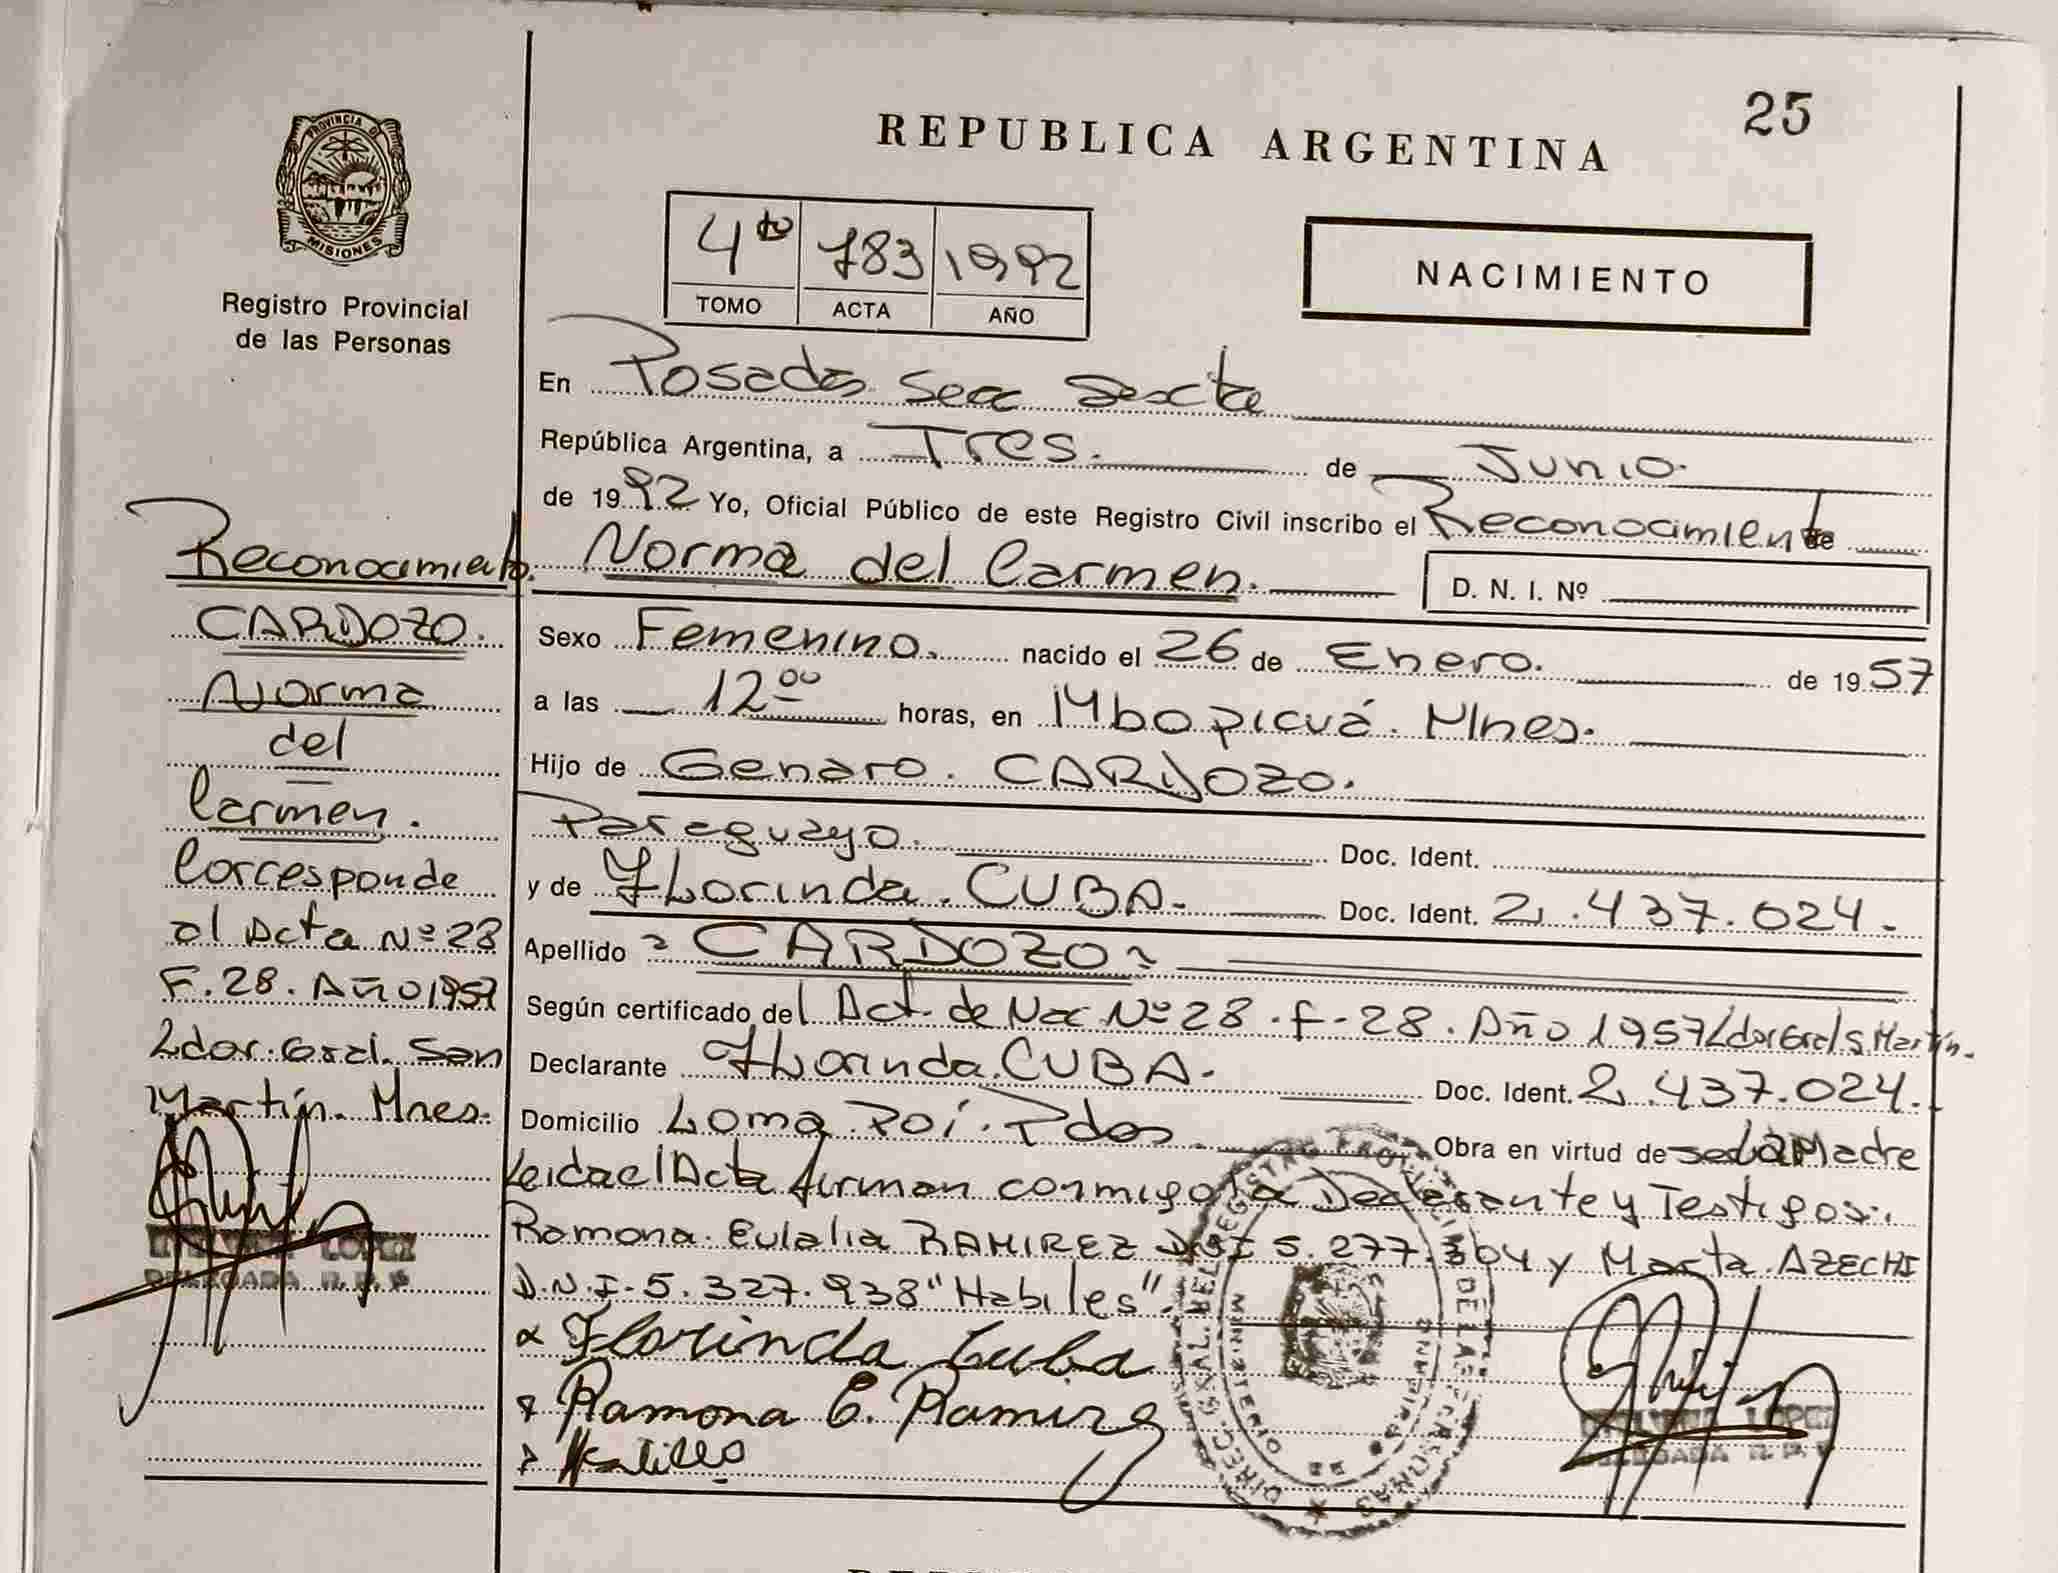 25
REPUBLICA ARGENTINA
PROVINCIA DE
MISIONES
Registro Provincial
de las Personas
4to 783 1992
TOMO ACTA AÑO
NACIMIENTO
En Posadas Secc Sexta
República Argentina, a Tres. de Junio.
de 1992 Yo, Oficial Público de este Registro Civil inscribo el Reconocimiento de
Norma del Carmen. D. N. I. Nº
Sexo Femenino. nacido el 26 de Enero. de 1957
a las 12 00 horas, en Mbopicuá. Mnes.
Hijo de Genaro. CARDOZO.
Paraguayo. Doc. Ident.
y de Florinda. CUBA. Doc. Ident. 2.437.024.
Apellido = CARDOZO=
Según certificado del Act. de Nac Nº 28. F-28. Año 1957 Ldor Gral S. Martín.
Declarante Florinda. CUBA. Doc. Ident. 2.437.024.
Domicilio Loma Poí. Pdas. Obra en virtud de ser la Madre
Leida el Acta firman conmigo la Declarante y Testigos:
Ramona. Eulalia RAMIREZ DNI 5.277.304 y Marta. AZECHI
D.N.I-5.327.938 "Habiles".
Florinda Cuba
Ramona E. Ramirez
Reconocimiento.
CARDOZO.
Norma
del
Carmen.
Corresponde
al Acta Nº 28
F.28. Año 1957
Ldor. Gral. San
Martín. Mnes.
LOPEZ
DELEGADA R.P.P
LOPEZ
DELEGADA R.P.P
DIREC. GRAL. DEL REGISTRO PROVINCIAL DE LAS PERSONAS
MINISTERIO DE